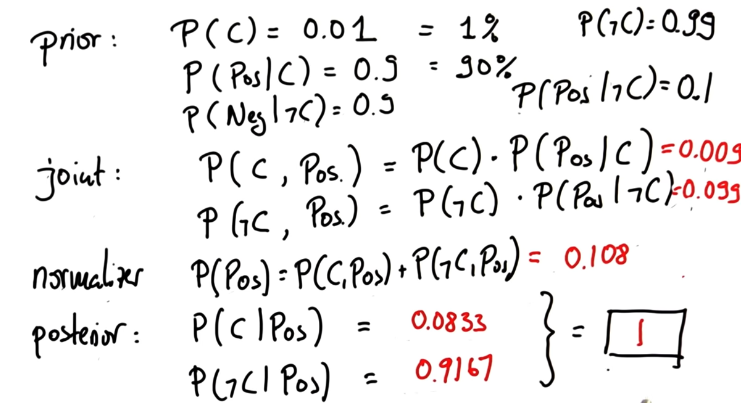 prior: P(C) = 0.01 = 1% P(¬C)=0.99
P(Pos|C) = 0.9 = 90% P(Pos|¬C)=0.1
P(Neg|¬C)= 0.9
joint: P(C, Pos.) = P(C)·P(Pos|C)=0.009
P(¬C, Pos.) = P(¬C)·P(Pos|¬C)=0.099
normalizer P(Pos)=P(C,Pos)+P(¬C,Pos)= 0.108
posterior: P(C|Pos) = 0.0833 } = 1
P(¬C|Pos) = 0.9167